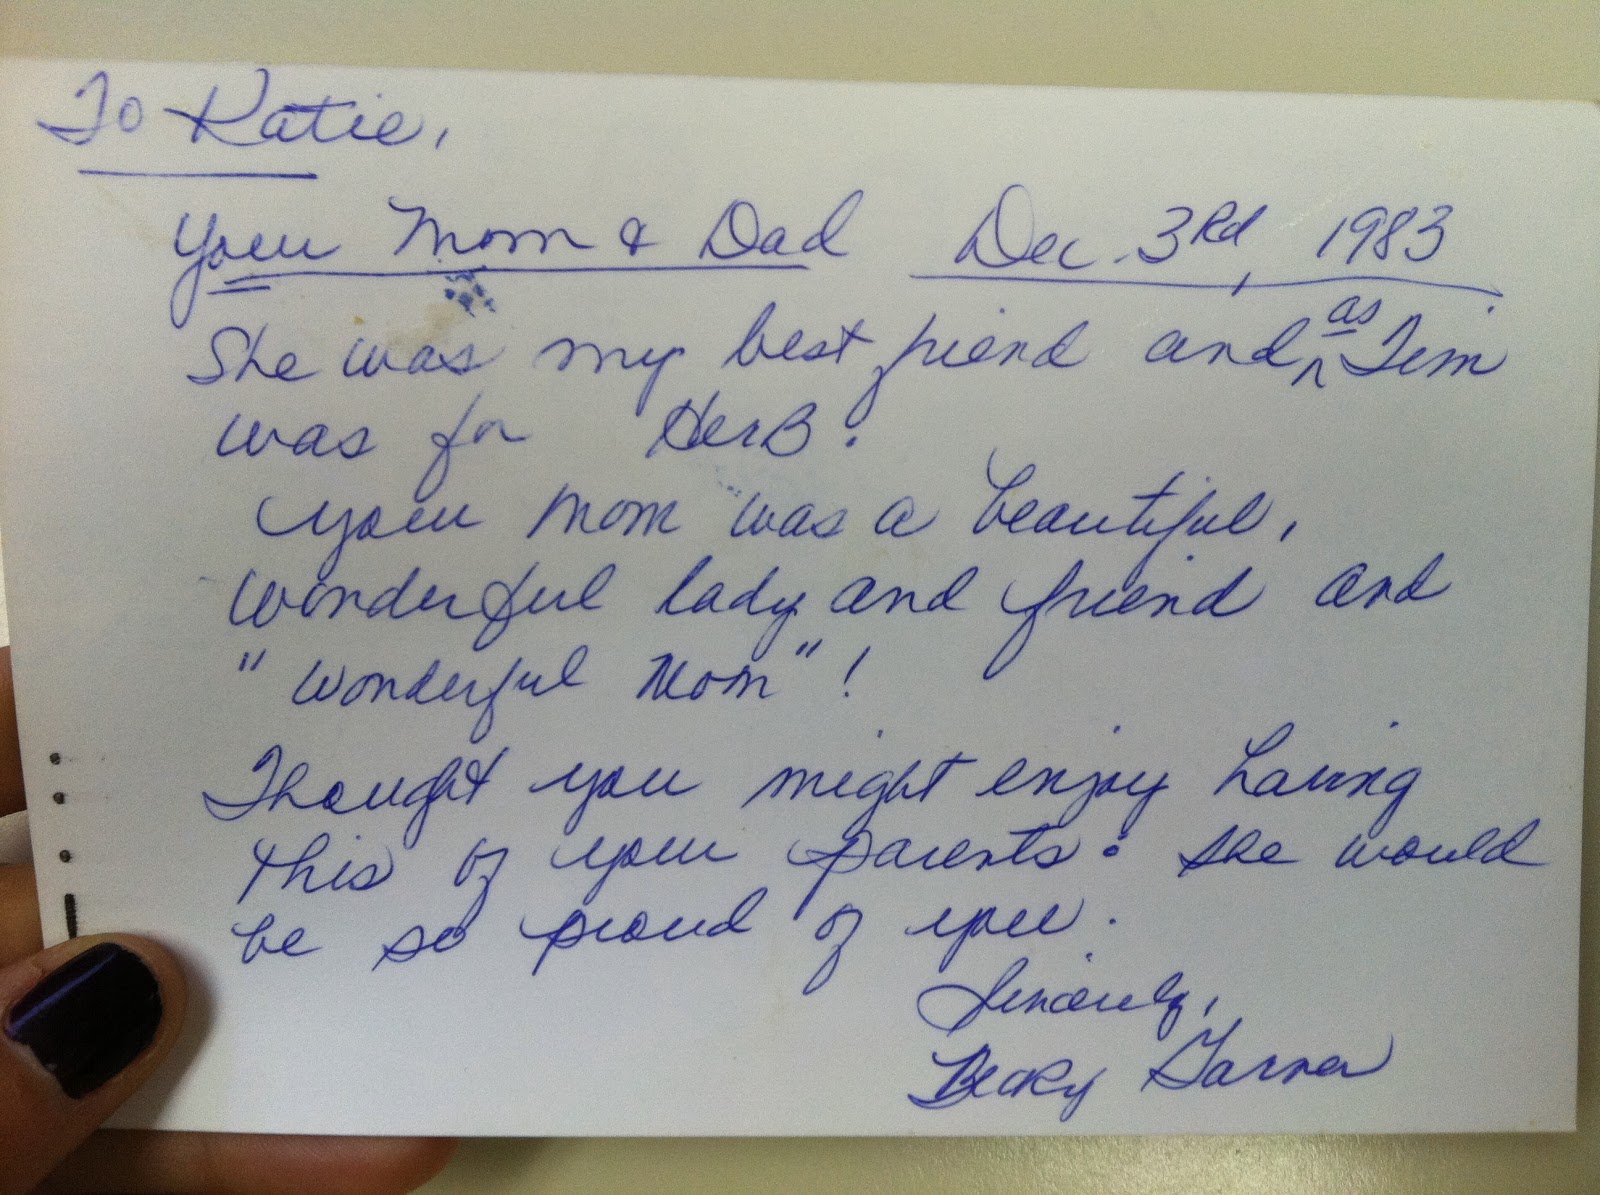 To Katie,
Your Mom & Dad Dec. 3rd, 1983
She was my best friend and as Tim
was for Herb.
Your Mom was a beautiful,
wonderful lady and friend and
"wonderful Mom"!
Thought you might enjoy having
this of your parents. She would
be so proud of you.
Sincerely,
Becky Garner